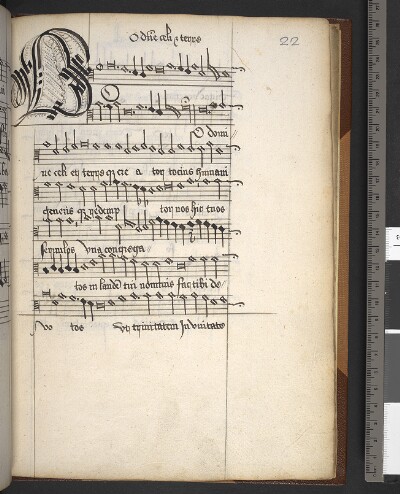 22
O dn̄e celi & terre
O
O domi
ne celi et terre
creator totius humani
generis redemp tor nos hic tuos
famulos vna congrega
tos in laudē tui nominis fac tibi de
uo tos vt trinitatem In vnitate